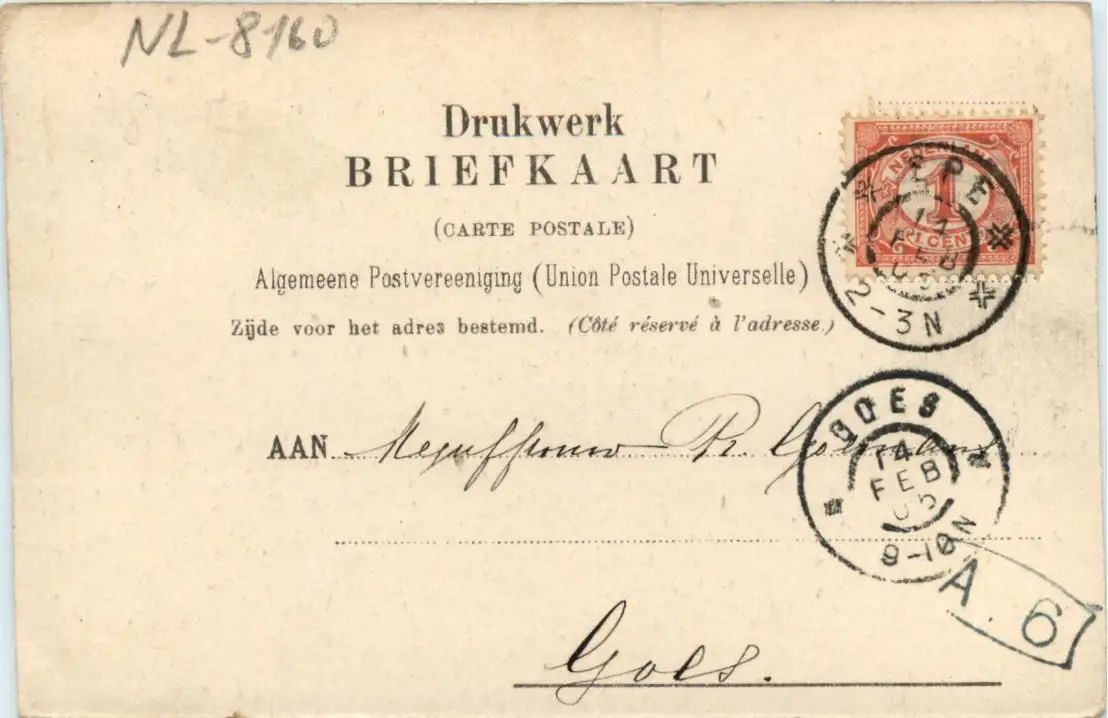 NL-8160
Drukwerk
BRIEFKAART
(CARTE POSTALE)
Algemeene Postvereeniging (Union Postale Universelle)
Zijde voor het adres bestemd. (Côté réservé à l'adresse.)
NEDERLAND
1
1 CENT
EPE
14
FEB
05
2-3N
AAN Mejuffrouw R.
GOES
14
FEB
05
9-10N
A. 6
Goes.